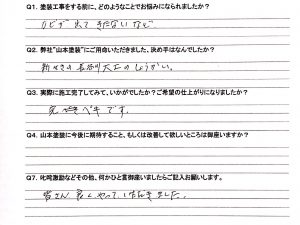 Q1. 塗装工事をする前に、どのようなことでお悩みになられましたか？
カビが出て きたない など
Q2. 弊社"山本塗装"にご用命いただきました、決め手はなんでしたか？
大工の しょうかい。
Q3. 実際に施工完了してみて、いかがでしたか？ご希望の仕上がりになりましたか？
完ペキ です。
Q4. 山本塗装に今後に期待すること、もしくは改善して欲しいところは御座いますか？
Q7. 叱咤激励などその他、何かひと言御座いましたらご記入お願いします。
皆さん 良く やって いただきました。